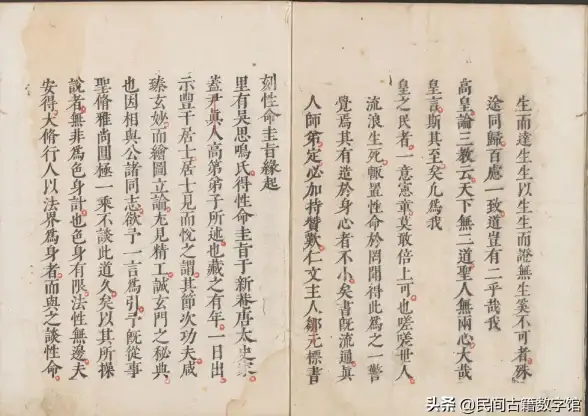 生而達生生以生生而證無生奚不可者殊
途同歸百慮一致道豈有二乎哉我
高皇論三教云天下無二道聖人無兩心大哉
皇言斯其至矣凡為我
皇之民者一意憲章莫敢倍上可也嗟嗟世人
流浪生死輒置性命於罔聞得此為之一警
覺焉其有造於身心者不小矣書既流通真
人師第定必加持贊歎仁文主人鄒元標書
刻性命圭旨緣起
里有吳思鳴氏得性命圭旨于新菴唐太史家
蓋尹真人高第弟子所述也藏之有年一日出
示豐干居士居士見而悅之謂其節次功夫咸
臻玄妙而繪圖立論尤見精工誠玄門之秘典
也因相與公諸同志欲予一言為引予既從事
聖脩雅尚圓極一乘不談此道久矣以其所操
說者無非為色身計也色身有限法性無邊夫
安得大脩行人以法界為身者而與之談性命
头条 @民间古籍数字馆